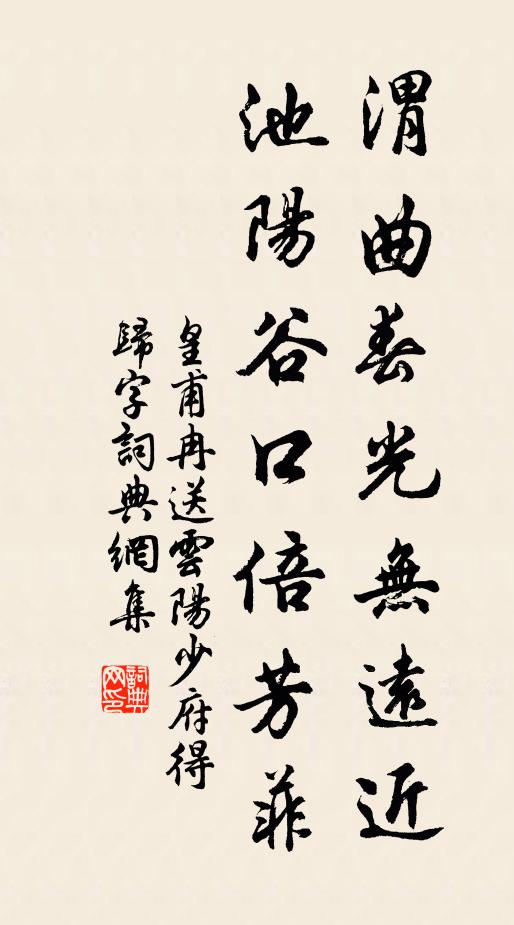 渭曲春光無遠近
池陽谷口倍芳菲
皇甫冉送雲陽少府得
歸字詞典網集
詞典
网印